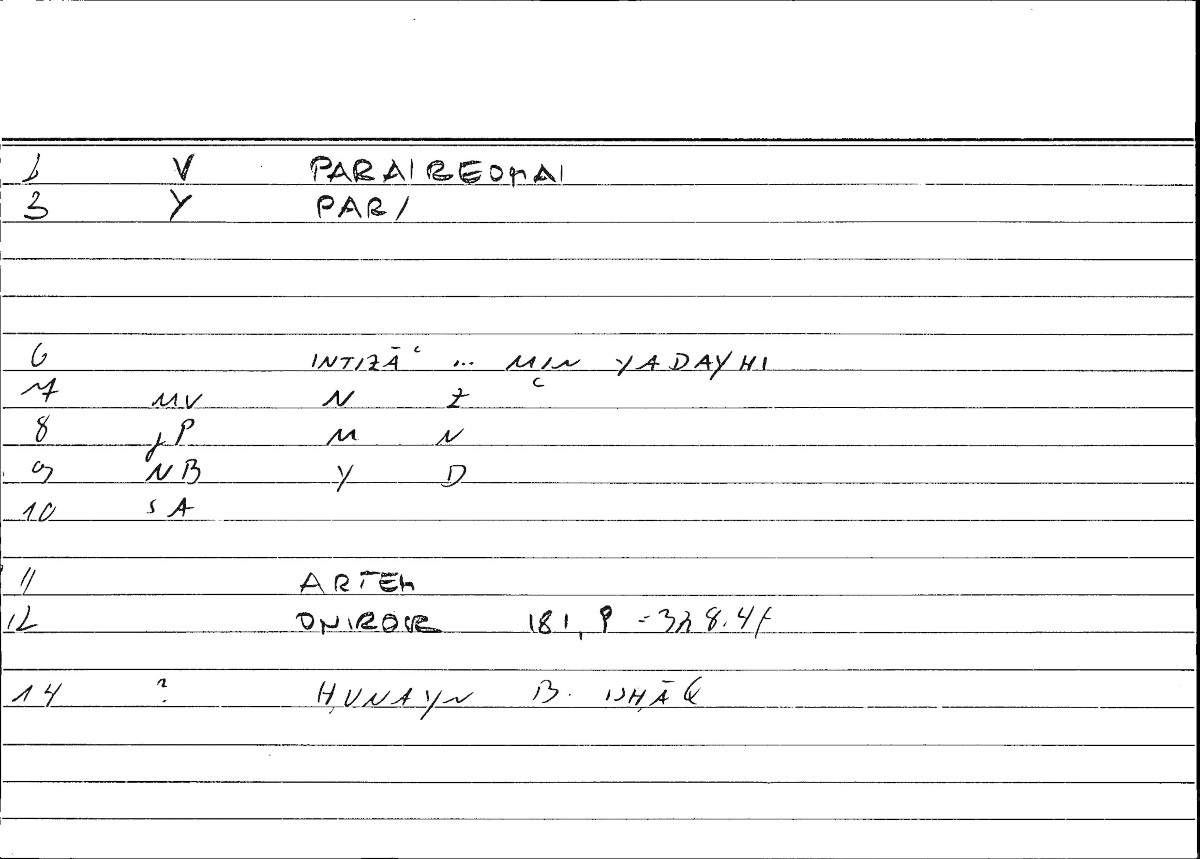 1 V PARAIREOMAI
3 Y PAR/
6 INTIZĀʿ ... MIN YADAYHI
7 MV N Z ʿ
8 P M N
9 NB Y D
10 SA
11 ARTEM
12 ONIROCR 181, 9 = 328.4f
14 ? ḤUNAYN B. ISḤĀQ